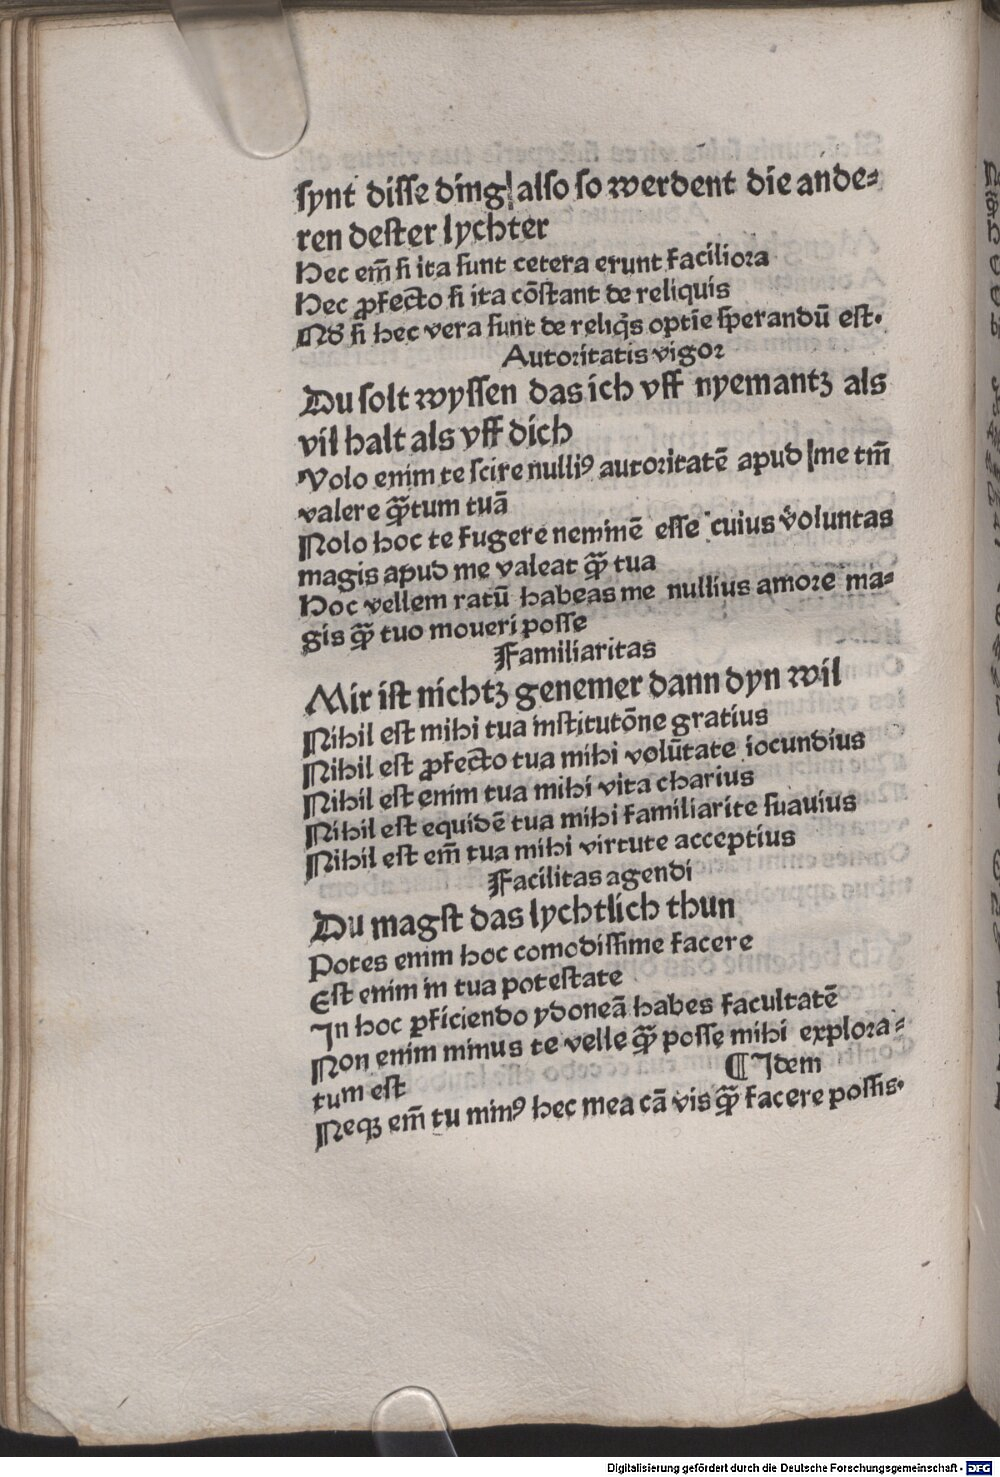 synt disse ding also so werdent die ande⸗
ren dester lychter
Hec em̄ si ita sunt cetera erunt faciliora
Hec ꝓfecto si ita cōstant de reliquis
Nā si hec vera sunt de reliq̄s optīe sperandū est.
Autoritatis vigor
Du solt wyssen das ich vff nyemantz als
vil halt als vff dich
Volo enim te scire nulliꝰ autoritatē apud me tm̄
valere q̄ꝫtum tuā
Nolo hoc te fugere neminē esse cuius voluntas
magis apud me valeat q̄ꝫ tua
Hoc vellem ratū habeas me nullius amore ma⸗
gis q̄ꝫ tuo moueri posse
Familiaritas
Mir ist nichtz genemer dann dyn wil
Nihil est mihi tua institutōne gratius
Nihil est ꝓfecto tua mihi volūtate iocundius
Nihil est enim tua mihi vita charius
Nihil est equidē tua mihi familiarite suauius
Nihil est em̄ tua mihi virtute acceptius
Facilitas agendi
Du magst das lychtlich thun
Potes enim hoc comodissime facere
Est enim in tua potestate
In hoc ꝑficiendo ydoneā habes facultatē
Non enim minus te velle q̄ꝫ posse mihi explora⸗
tum est ¶ Idem
Neqꝫ em̄ tu minꝰ hec mea cā vis q̄ꝫ facere possis.
Digitalisierung gefördert durch die Deutsche Forschungsgemeinschaft - DFG